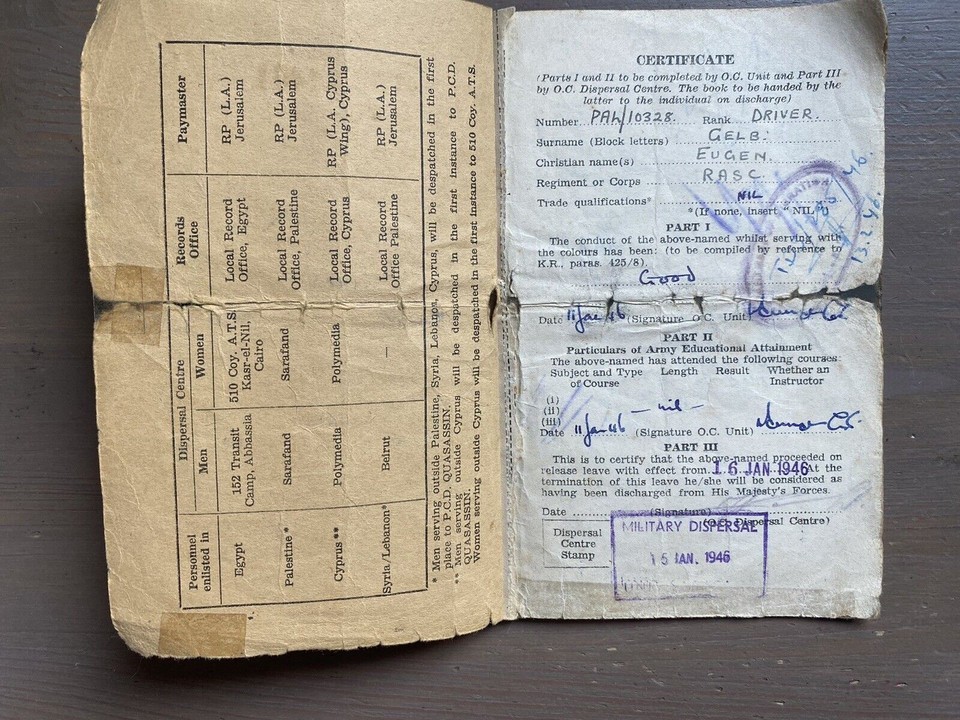 Personnel enlisted in
Dispersal Centre
Men
Women
Records Office
Paymaster
Egypt
152 Transit Camp, Abbassia
510 Coy. A.T.S. Kasr-el-Nil, Cairo
Local Record Office, Egypt
RP (L.A.) Jerusalem
Palestine*
Sarafand
Sarafand
Local Record Office, Palestine
RP (L.A.) Jerusalem
Cyprus**
Polymedia
Polymedia
Local Record Office, Cyprus
RP (L.A. Cyprus Wing), Cyprus
Syria/Lebanon*
Beirut
—
Local Record Office Palestine
RP (L.A.) Jerusalem
* Men serving outside Palestine, Syria, Lebanon, Cyprus, will be despatched in the first
place to P.C.D. QUASASSIN.
** Men serving outside Cyprus will be despatched in the first instance to P.C.D.
QUASASSIN.
Women serving outside Cyprus will be despatched in the first instance to 510 Coy. A.T.S.
CERTIFICATE
(Parts I and II to be completed by O.C. Unit and Part III
by O.C. Dispersal Centre. The book to be handed by the
latter to the individual on discharge)
Number PAL/10328. Rank DRIVER.
Surname (Block letters) GELB.
Christian name(s) EUGEN.
Regiment or Corps RASC.
Trade qualifications* NIL
*(If none, insert "NIL"
PART I
The conduct of the above-named whilst serving with
the colours has been: (to be compiled by reference to
K.R., paras. 425/8).
Good
Date 11 Jan 46 (Signature O.C. Unit)
PART II
Particulars of Army Educational Attainment
The above-named has attended the following courses:
Subject and Type of Course Length Result Whether an Instructor
(i)
(ii) — nil —
(iii)
Date 11 Jan 46 (Signature O.C. Unit)
PART III
This is to certify that the above-named proceeded on
release leave with effect from 16 JAN 1946 At the
termination of this leave he/she will be considered as
having been discharged from His Majesty's Forces.
Date (Signature)
(O.C. Dispersal Centre)
Dispersal
Centre
Stamp
MILITARY DISPERSAL
15 JAN. 1946
13.2.46.